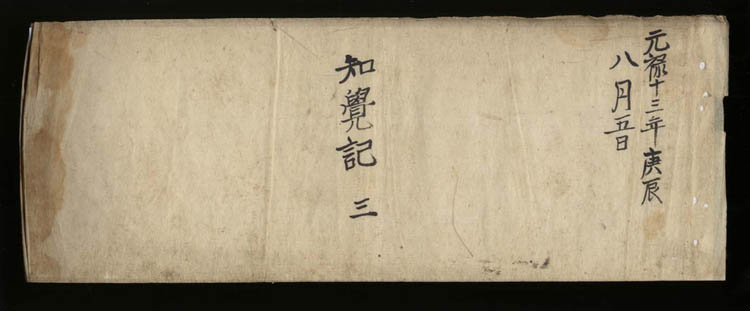 元禄十三年庚辰
八月五日
知覺記 三